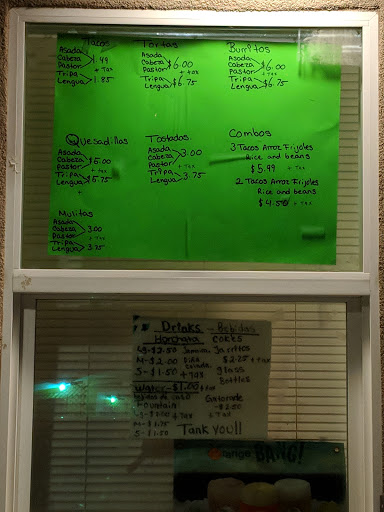 Tacos
Asada
Cabeza 1.49
Pastor + tax
Tripa
Lengua 1.85
Tortas
Asada
Cabeza $6.00
Pastor + tax
Tripa
Lengua $6.75
Burritos
Asada
Cabeza $6.00
Pastor + tax
Tripa
Lengua $6.75
Quesadillas
Asada
Cabeza $5.00
Pastor + tax
Tripa
Lengua $5.75
Tostadas
Asada
Cabeza 3.00
Pastor + tax
Tripa
Lengua 3.75
Combos
3 Tacos Arroz Frijoles
Rice and beans
$5.99 + tax
2 Tacos Arroz Frijoles
Rice and beans
$4.50 + tax
Mulitas
Asada
Cabeza 3.00
Pastor + tax
Tripa
Lengua 3.75
Drinks - Bebidas
Horchata
Lg-$2.50 Jamaica
M-$2.00 Piña
S-$1.50 + tax
Water-$1.00
Fountain
M-$1.75
S-$1.50
Cokes
Jarritos
$2.25 + tax
glass
Bottles
Gatorade
-$2.50
+ tax
Tank you!!
Orange BANG!